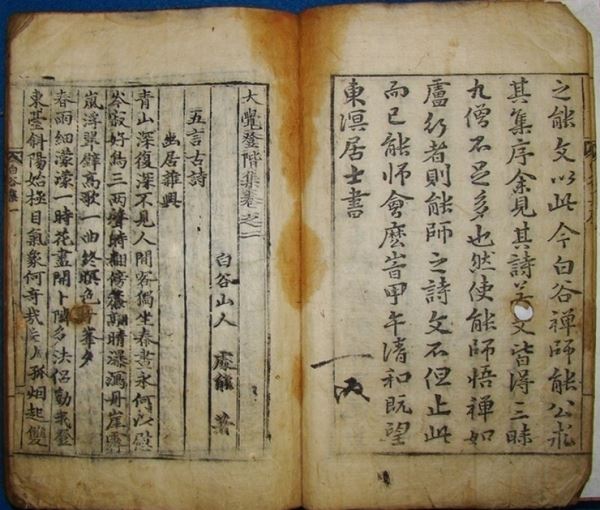 之能文以此今白谷禪師能公求
其集序余見其詩文皆得三昧
九僧不足多也然使能師悟禪如
盧行者則能師之詩文不但止此
而已能師會麽峕甲午清和既望
東溟居士書
大覺登階集卷之一
白谷山人 處能 著
五言古詩
幽居雜興
青山深復深不見人間客獨坐春晝永何以慰
岑寂好鳥三兩聲時翻傍藤高晴瀑瀉丹崖霽
嵐浮翠壁高歌一曲終暝色千峯夕
春雨細濛濛一時花盡開卜隣多法侶勸我登
東臺斜陽姑極目氣象何奇哉孤烟起雙
白谷集一